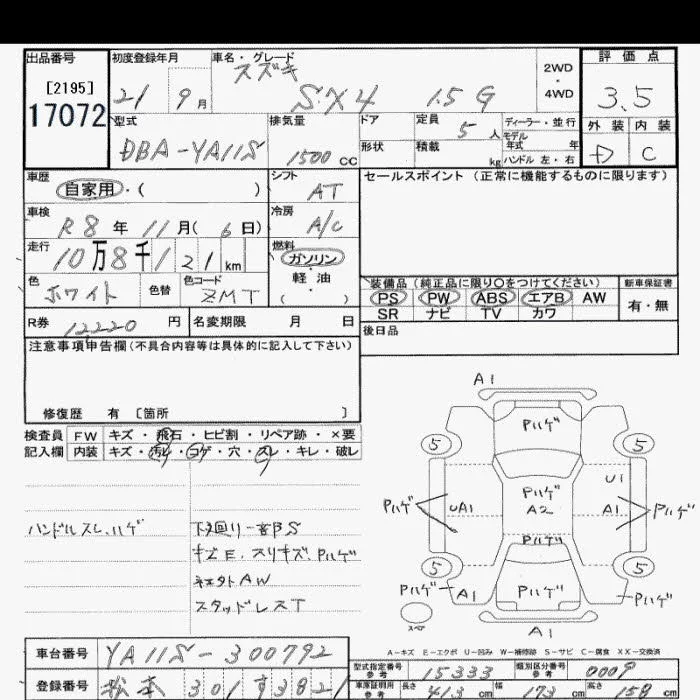 出品番号 初度登録年月 車名・グレード 評価点
[2195] スズキ 2WD・4WD
17072 21 9月 SX4 1.5G 3.5
型式 排気量 ドア 定員 5人 ディーラー・並行 外装 内装
モデル年式 年
DBA-YA11S 1500cc 形状 積載 kg ハンドル 左・右 D C
車歴 シフト セールスポイント(正常に機能するものに限ります)
自家用・( ) AT
車検 冷房
R8年11月(6日) A/C
走行 燃料
10万8千121km ガソリン
色 色替 色コード 軽・油 装備品(純正品に限り○をつけてください) 新車保証書
ホワイト ZMT ( ) PS PW ABS エアB AW 有・無
SR ナビ TV カワ
R券 12220円 名変期限 月 日 後日品
注意事項申告欄(不具合内容等は具体的に記入して下さい)
修復歴 有 [箇所 ]
検査員 FW キズ・飛石・ヒビ割・リペア跡・×要
記入欄 内装 キズ・汚レ・コゲ・穴・スレ・キレ・破レ
ハンドルスレ、ハゲ 下廻リ一部S
キズE、スリキズ、Pハゲ
社外AW
スタッドレスT
A1
Pハゲ
5 5
Pハゲ U1
Pハゲ UA1 A2 A1 Pハゲ
Pハゲ
5 5
Pハゲ A1 Pハゲ Pハゲ
スペア
A1
A-キズ E-エクボ U-凹み W-補修跡 S-サビ C-腐食 XX-交換済
車台番号 YA11S-300792
型式指定番号 参考 15333 類別区分番号 参考 0009
登録番号 松本 301 す3821
車庫証明用 参考 長さ 413cm 幅 173cm 高さ 158cm